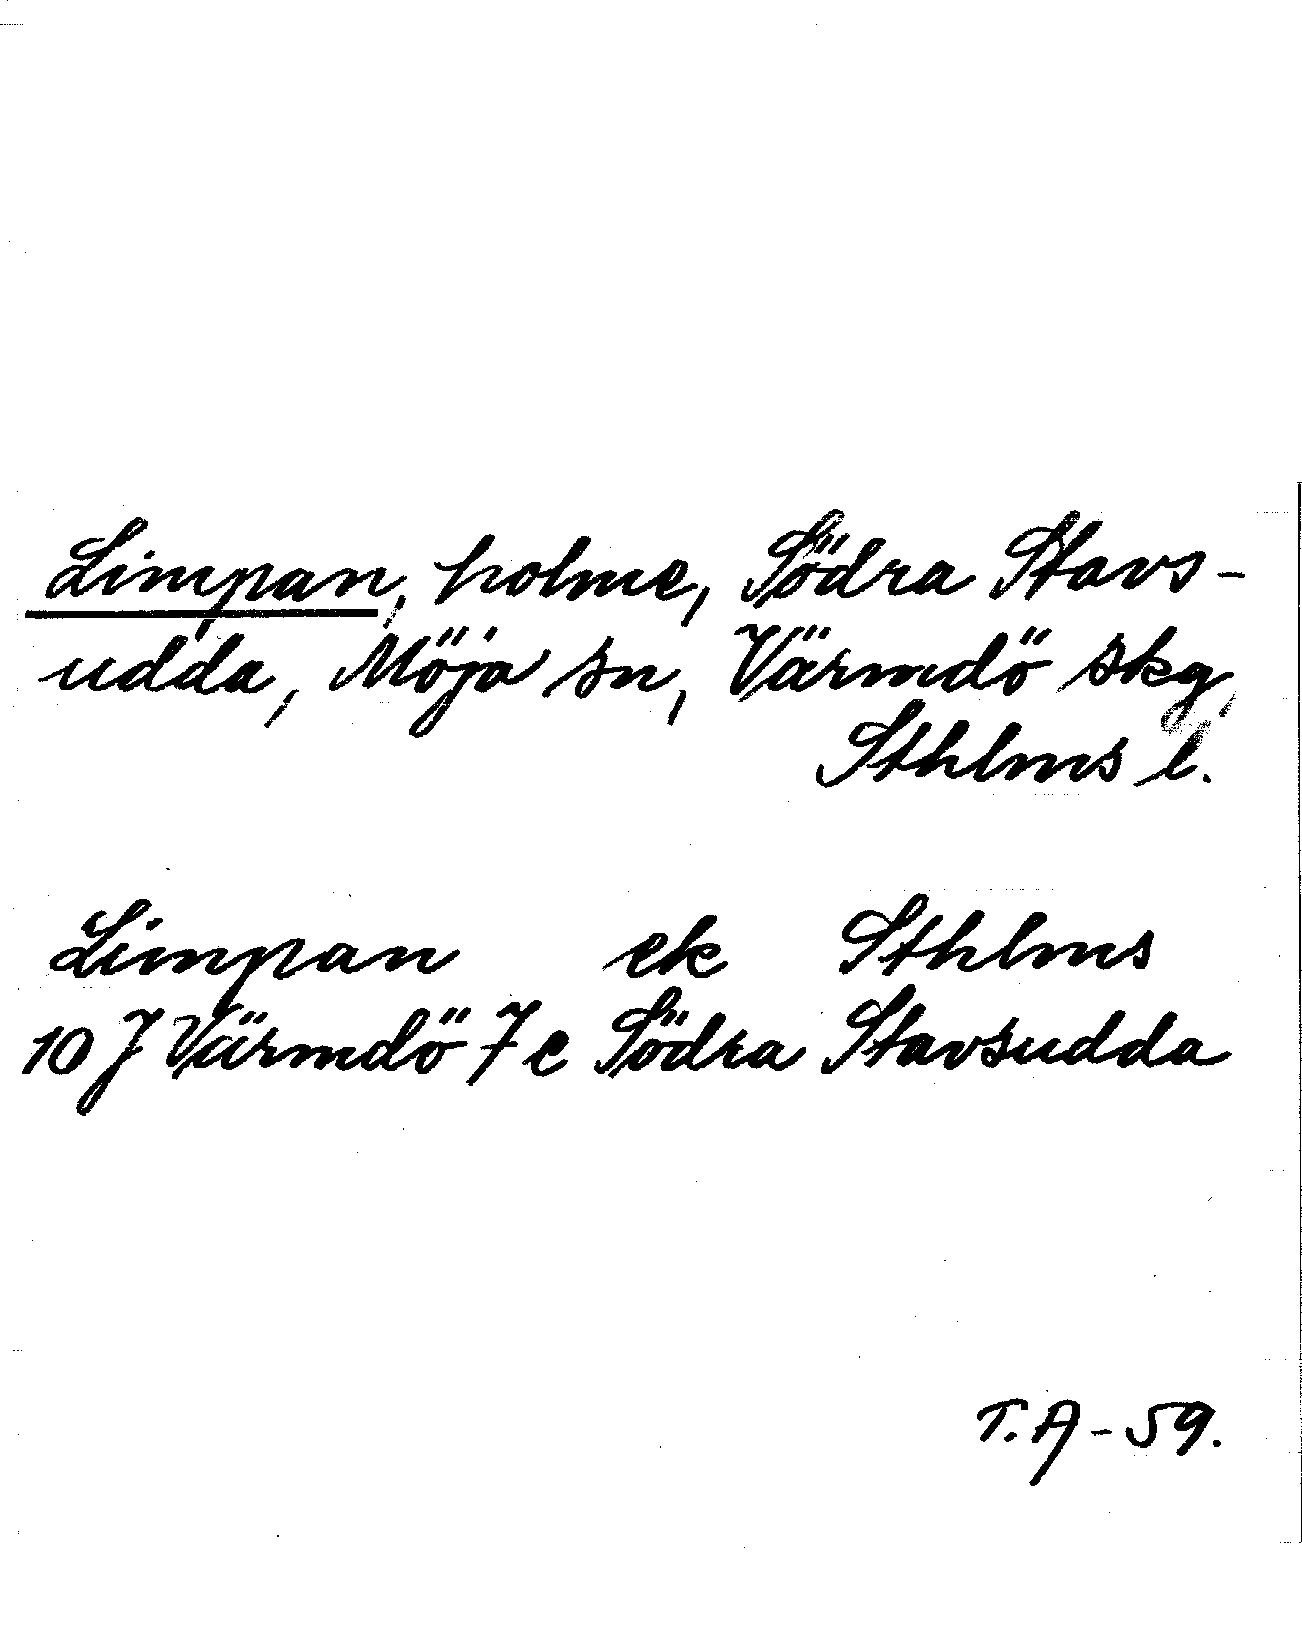 Limpan, holme, Södra Stavs-
udda, Möja sn, Värmdö skg,
Sthlms l.
Limpan ek Sthlms
10 J Värmdö 7 e Södra Stavsudda
T. A - 59.